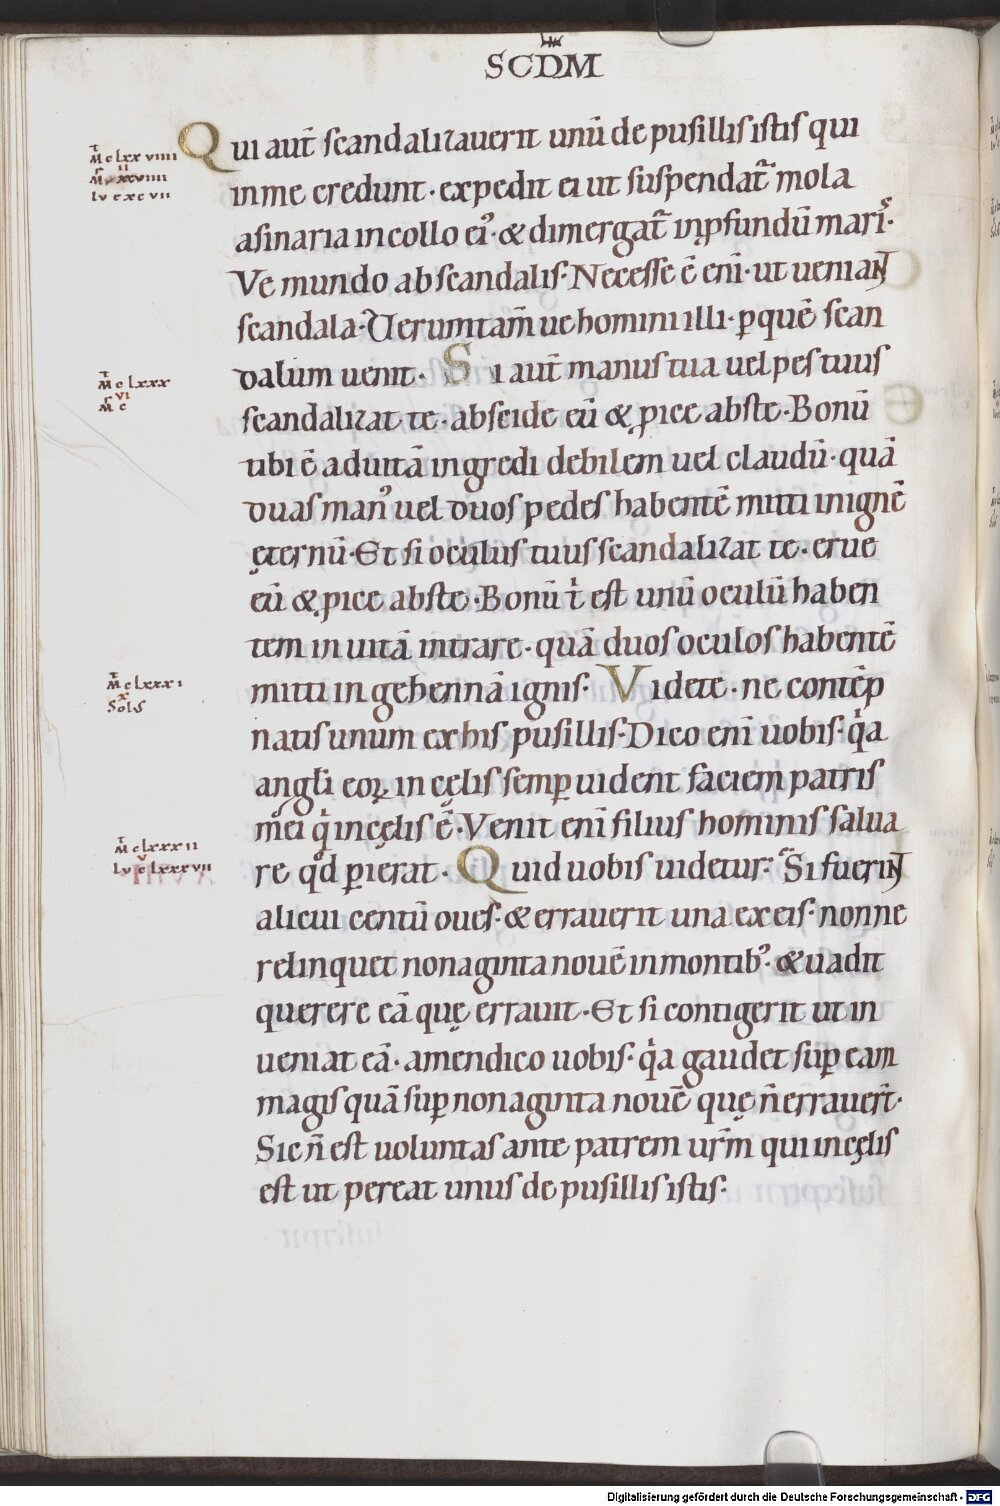 SCDM
Qui aut̄ scandalizauerit unū de pusillis istis qui
in me credunt · expedit ei ut suspendat̄ mola
asinaria in collo ei᾽ · & dimergat̄ in ꝓfundū maris ·
Ve mundo ab scandalis · Necesse ē eni̅ · ut ueniant
scandala · Uerumtam̄ ue homini illi · p̱ quē scan
dalum uenit · Si aut̄ manus tua uel pes tuus
scandalizat te · abscide eū & ꝓice abs te · Bonū
tibi ē ad uitā ingredi debilem uel claudū · quā
duas man᾽ uel duos pedes habentē mitti in ignē
ęternū · Et si oculus tuus scandalizat te · erue
eū & ꝓice abs te · Bonū t̍ est unū oculū haben
tem in uitā intrare · quā duos oculos habentē
mitti in gehennā ignis · Videte · ne contēp
natis unum ex his pusillis · Dico eni̅ uobis · q̍a
angl̄i eoꝝ in cęlis semp̱ uident faciem patris
mei q̍ in cęlis ē · Venit eni̅ filius hominis salua
re qd̄ p̱ierat · Quid uobis uidetur · Si fuerint
alicui centū oues · & errauerit una ex eis · nonne
relinquet nonaginta nouē in montib᾽ · & uadit
querere eā quę errauit · Et si contigerit ut in
ueniat eā · amen dico uobis · q̍a gaudet sup̱ eam
magis quā sup̱ nonaginta nouē quę n̄ errauer̄ ·
Sic n̄ est uoluntas ante patrem ur̄m qui in cęlis
est ut pereat unus de pusillis istis ·
M clxxviiii
lv cxcvii
M clxxx
vi
M c
M clxxxi
x
Solus
M clxxxii
v
lv clxxxvii
Digitalisierung gefördert durch die Deutsche Forschungsgemeinschaft - DFG